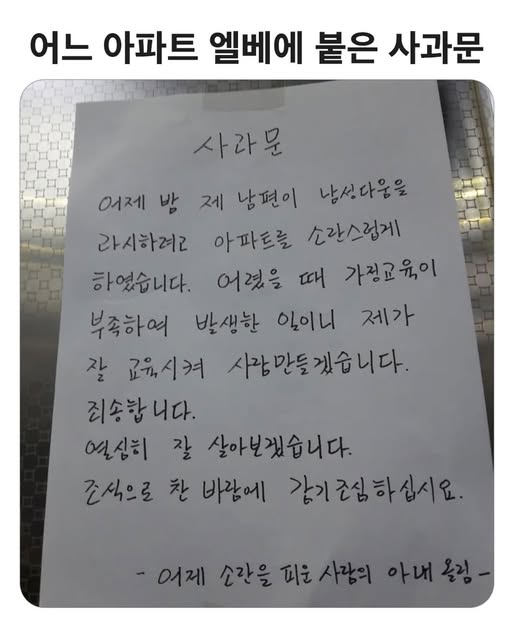 어느 아파트 엘베에 붙은 사과문
사과문
어제 밤 제 남편이 남성다움을
과시하려고 아파트를 소란스럽게
하였습니다. 어렸을 때 가정교육이
부족하여 발생한 일이니 제가
잘 교육시켜 사람만들겠습니다.
죄송합니다.
열심히 잘 살아보겠습니다.
조석으로 찬 바람에 감기조심하십시요.
- 어제 소란을 피운 사람의 아내 올림 -